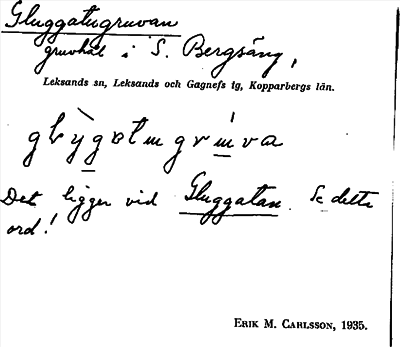 Gluggatugruvan
gruvhål i S. Bergsäng,
Leksands sn, Leksands och Gagnefs tg, Kopparbergs län.
Det ligger vid Gluggatan. Se detta
ord!
ERIK M. CARLSSON, 1935.